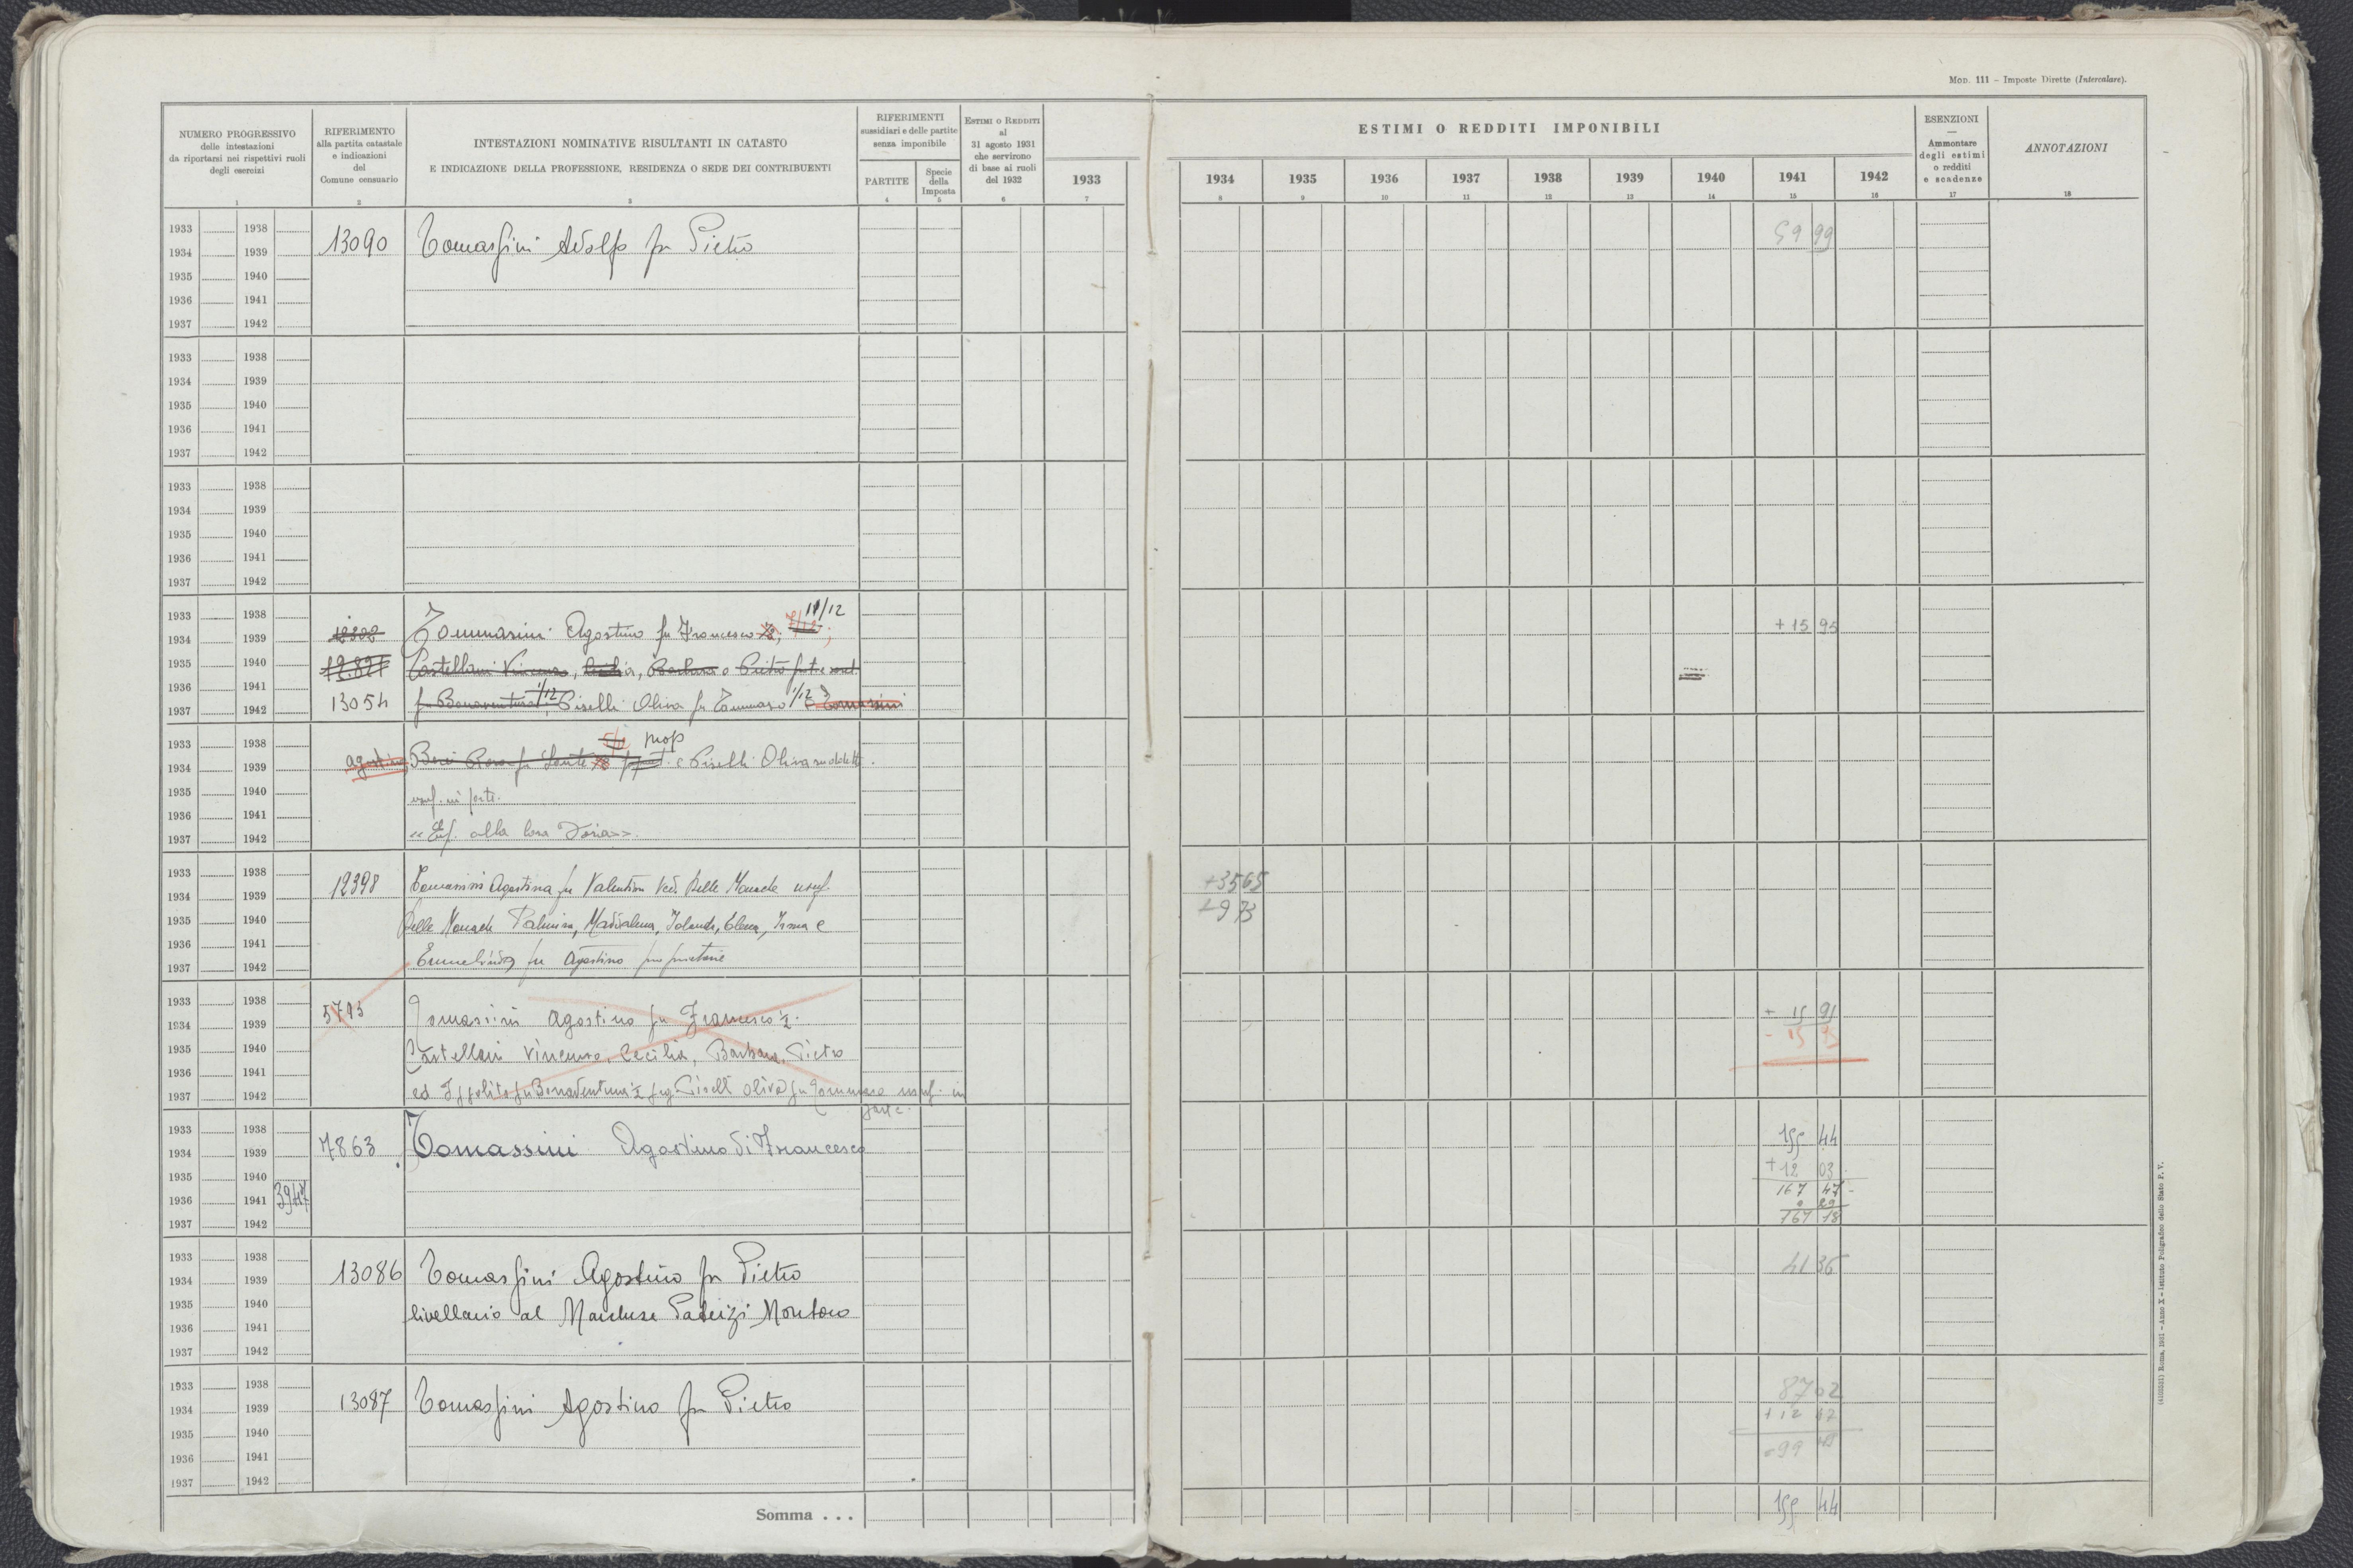 MOD. 111 – Imposte Dirette (Intercalare).
NUMERO PROGRESSIVO
delle intestazioni
da riportarsi nei rispettivi ruoli
degli esercizi
1
RIFERIMENTO
alla partita catastale
e indicazioni
del
Comune censuario
2
INTESTAZIONI NOMINATIVE RISULTANTI IN CATASTO
E INDICAZIONE DELLA PROFESSIONE, RESIDENZA O SEDE DEI CONTRIBUENTI
3
RIFERIMENTI
sussidiari e delle partite
senza imponibile
PARTITE
4
Specie
della
Imposta
5
ESTIMI O REDDITI
al
31 agosto 1931
che servirono
di base ai ruoli
del 1932
6
ESTIMI O REDDITI IMPONIBILI
1933 1934 1935 1936 1937 1938 1939 1940 1941 1942
7 8 9 10 11 12 13 14 15 16
ESENZIONI
—
Ammontare
degli estimi
o redditi
e scadenze
17
ANNOTAZIONI
18
1933 1938
1934 1939 13090 Tomassini Adolfo fu Pietro 59 99
1935 1940
1936 1941
1937 1942
1933 1938
1934 1939
1935 1940
1936 1941
1937 1942
1933 1938
1934 1939
1935 1940
1936 1941
1937 1942
1933 1938 11/12
1934 1939 Tommasini Agostino fu Francesco + 15 95
1935 1940 12.821 Castellani Vincenzo, Cecilia, Barbara e Pietro
1936 1941
1937 1942 13054 fu Bonaventura 1/12 Piselli Oliva fu Tommaso 1/12 e Tomassini
1933 1938 prop
1934 1939 Agostino Rosa fu Sante e Piselli Oliva suddetta
1935 1940 usuf. in parte.
1936 1941
1937 1942
1933 1938
1934 1939 12398 Tomassini Agostina fu Valentino Ved. Delle Monache usuf. +35 65
1935 1940 Delle Monache Palmira, Maddalena, Jolanda, Elena, Irma e +9 73
1936 1941
1937 1942 fu Agostino proprietarie
1933 1938
1934 1939 5793 Tomassini Agostino fu Francesco ½. + 15 95
1935 1940 Castellani Vincenzo, Cecilia, Barbara, Pietro - 15 95
1936 1941
1937 1942 ed Ippolito fu Bonaventura ½ e Piselli Oliva fu Tommaso usuf. in
parte.
1933 1938
1934 1939 7863 Tomassini Agostino di Francesco 155 44
1935 1940 + 12 03
1936 1941 3947 167 47
1937 1942 167 18
1933 1938
1934 1939 13086 Tomassini Agostino fu Pietro 41 36
1935 1940 livellario al Marchese Patrizi Montoro
1936 1941
1937 1942
1933 1938 87 02
1934 1939 13087 Tomassini Agostino fu Pietro + 12 47
1935 1940
1936 1941
1937 1942
Somma . . . 155 44
(4103531) Roma, 1931 – Anno X – Istituto Poligrafico dello Stato P. V.